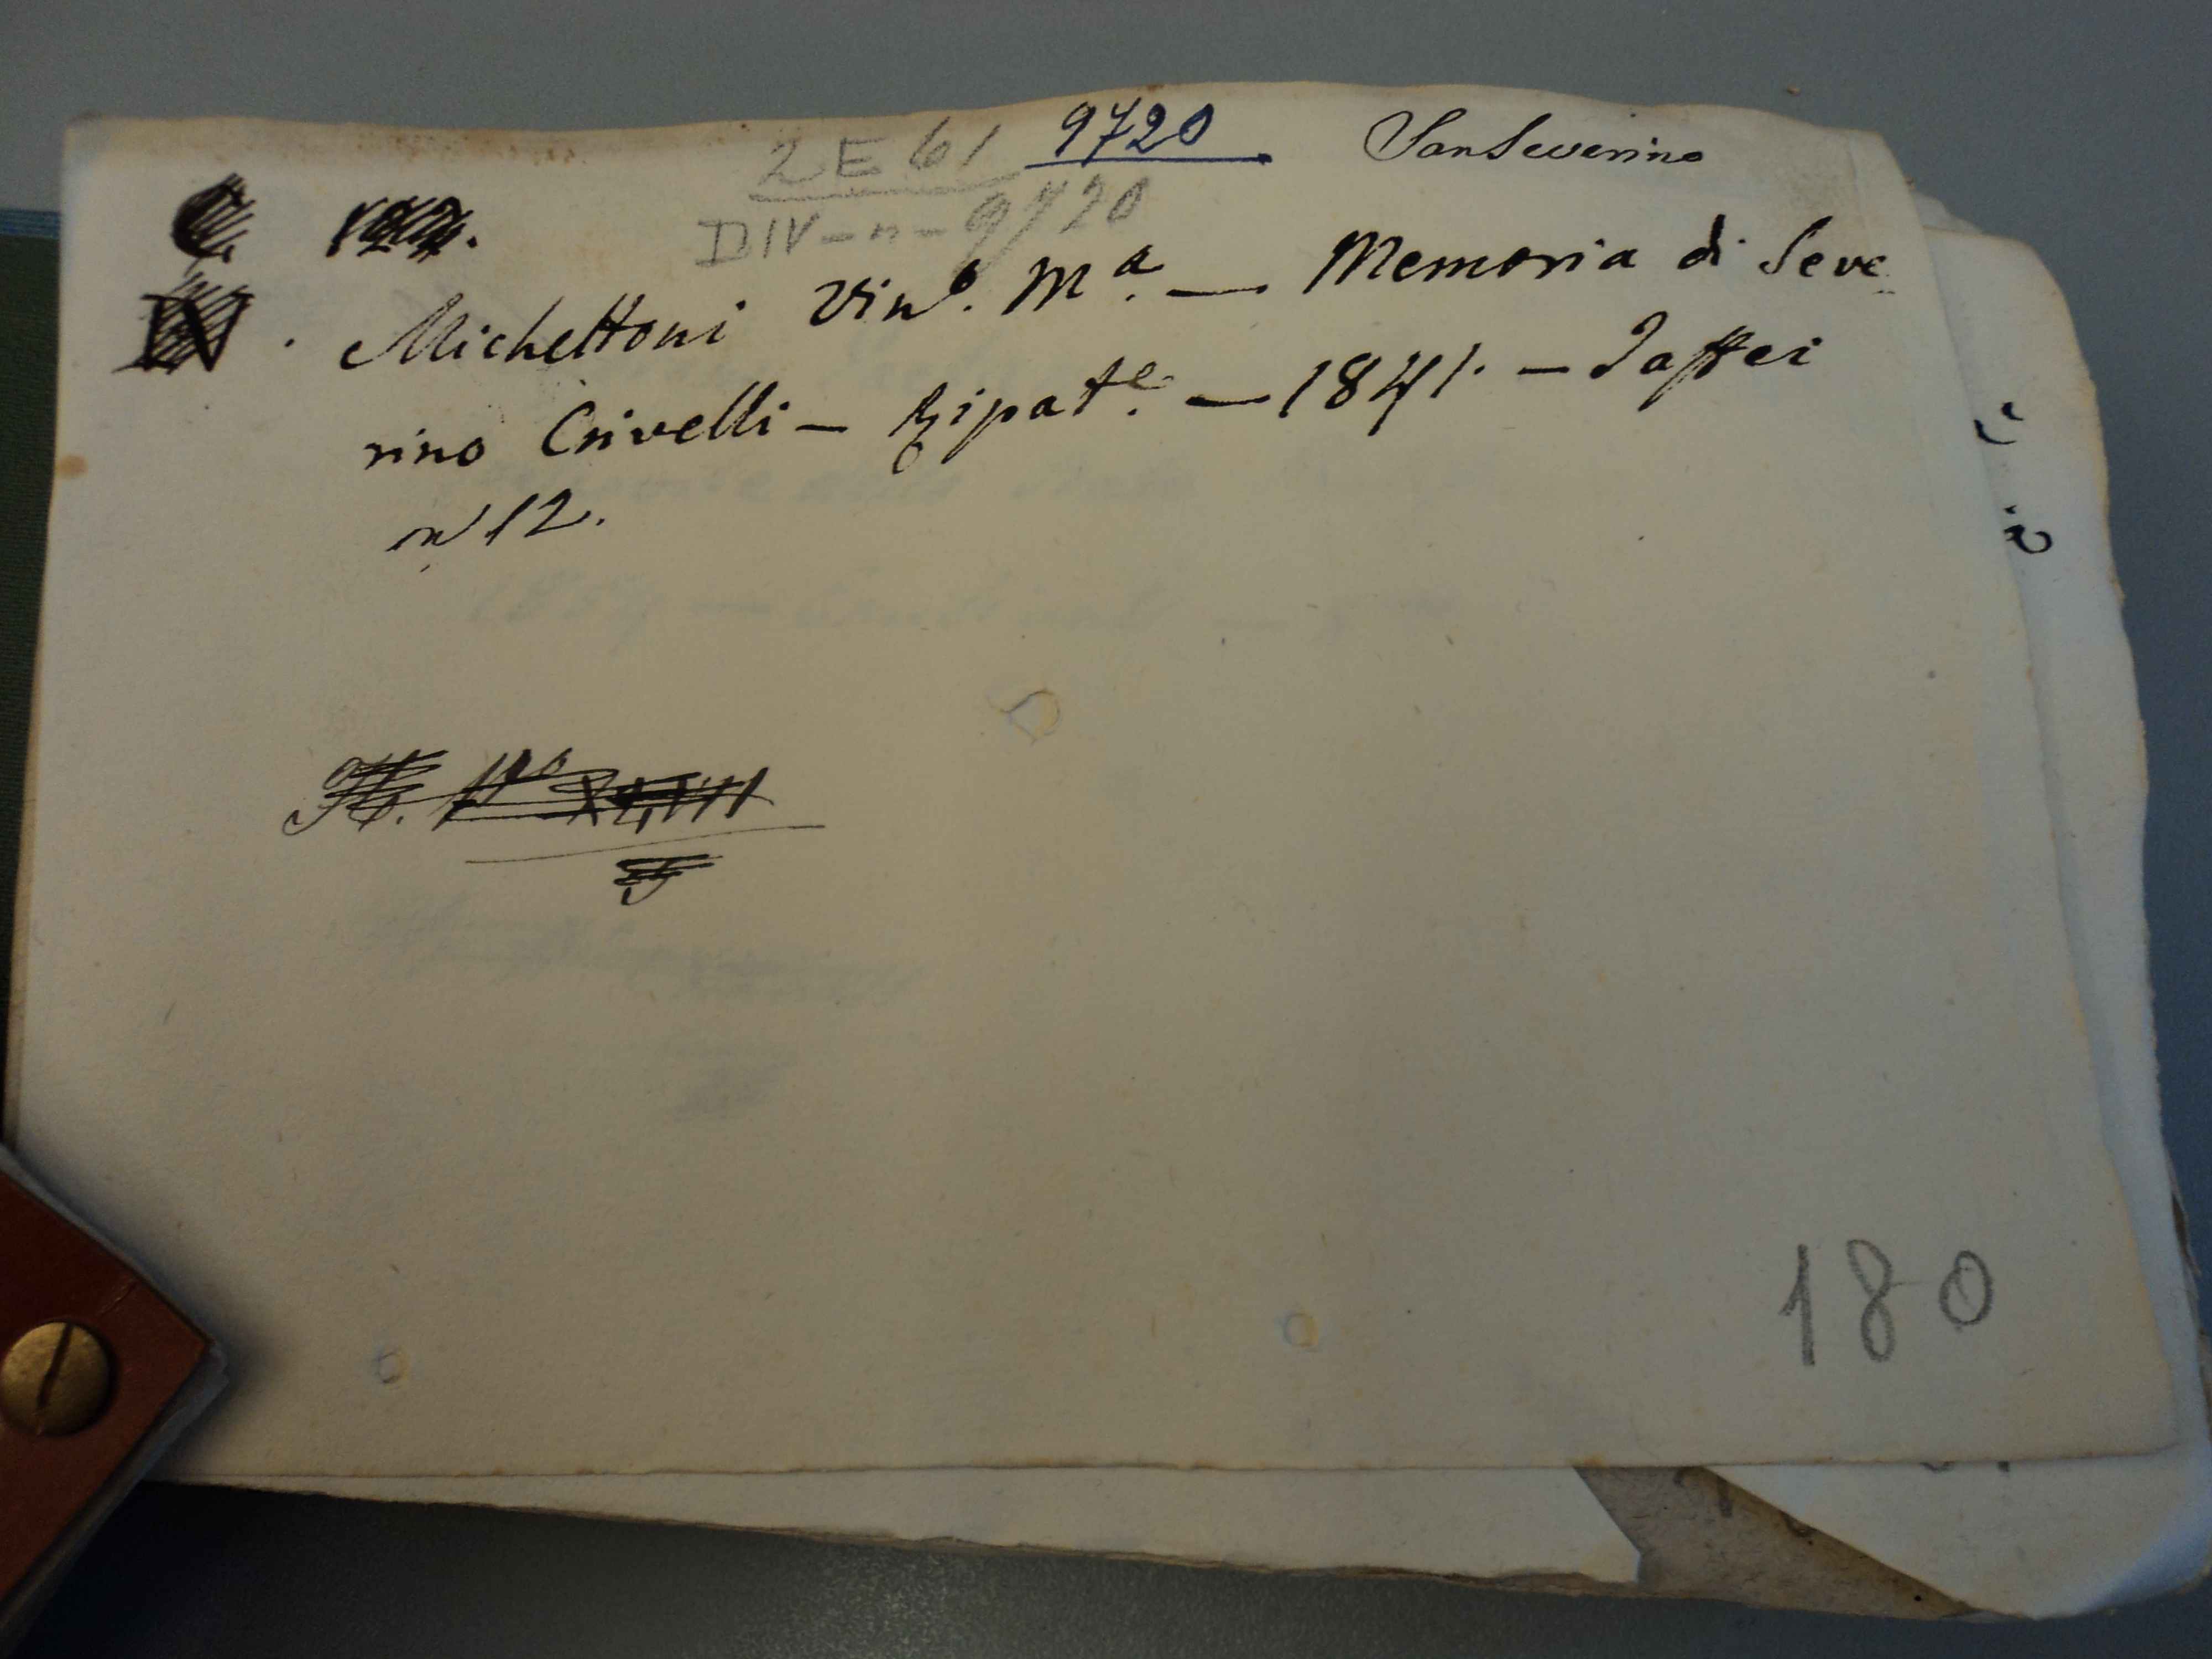 2 E 61 9720 SanSeverino
DIV-n-9720
Michettoni Vinº. Mª. — Memoria di Seve
rino Crivelli — Ripatᵉ. — 1841. — Jaffei
in 12.
180